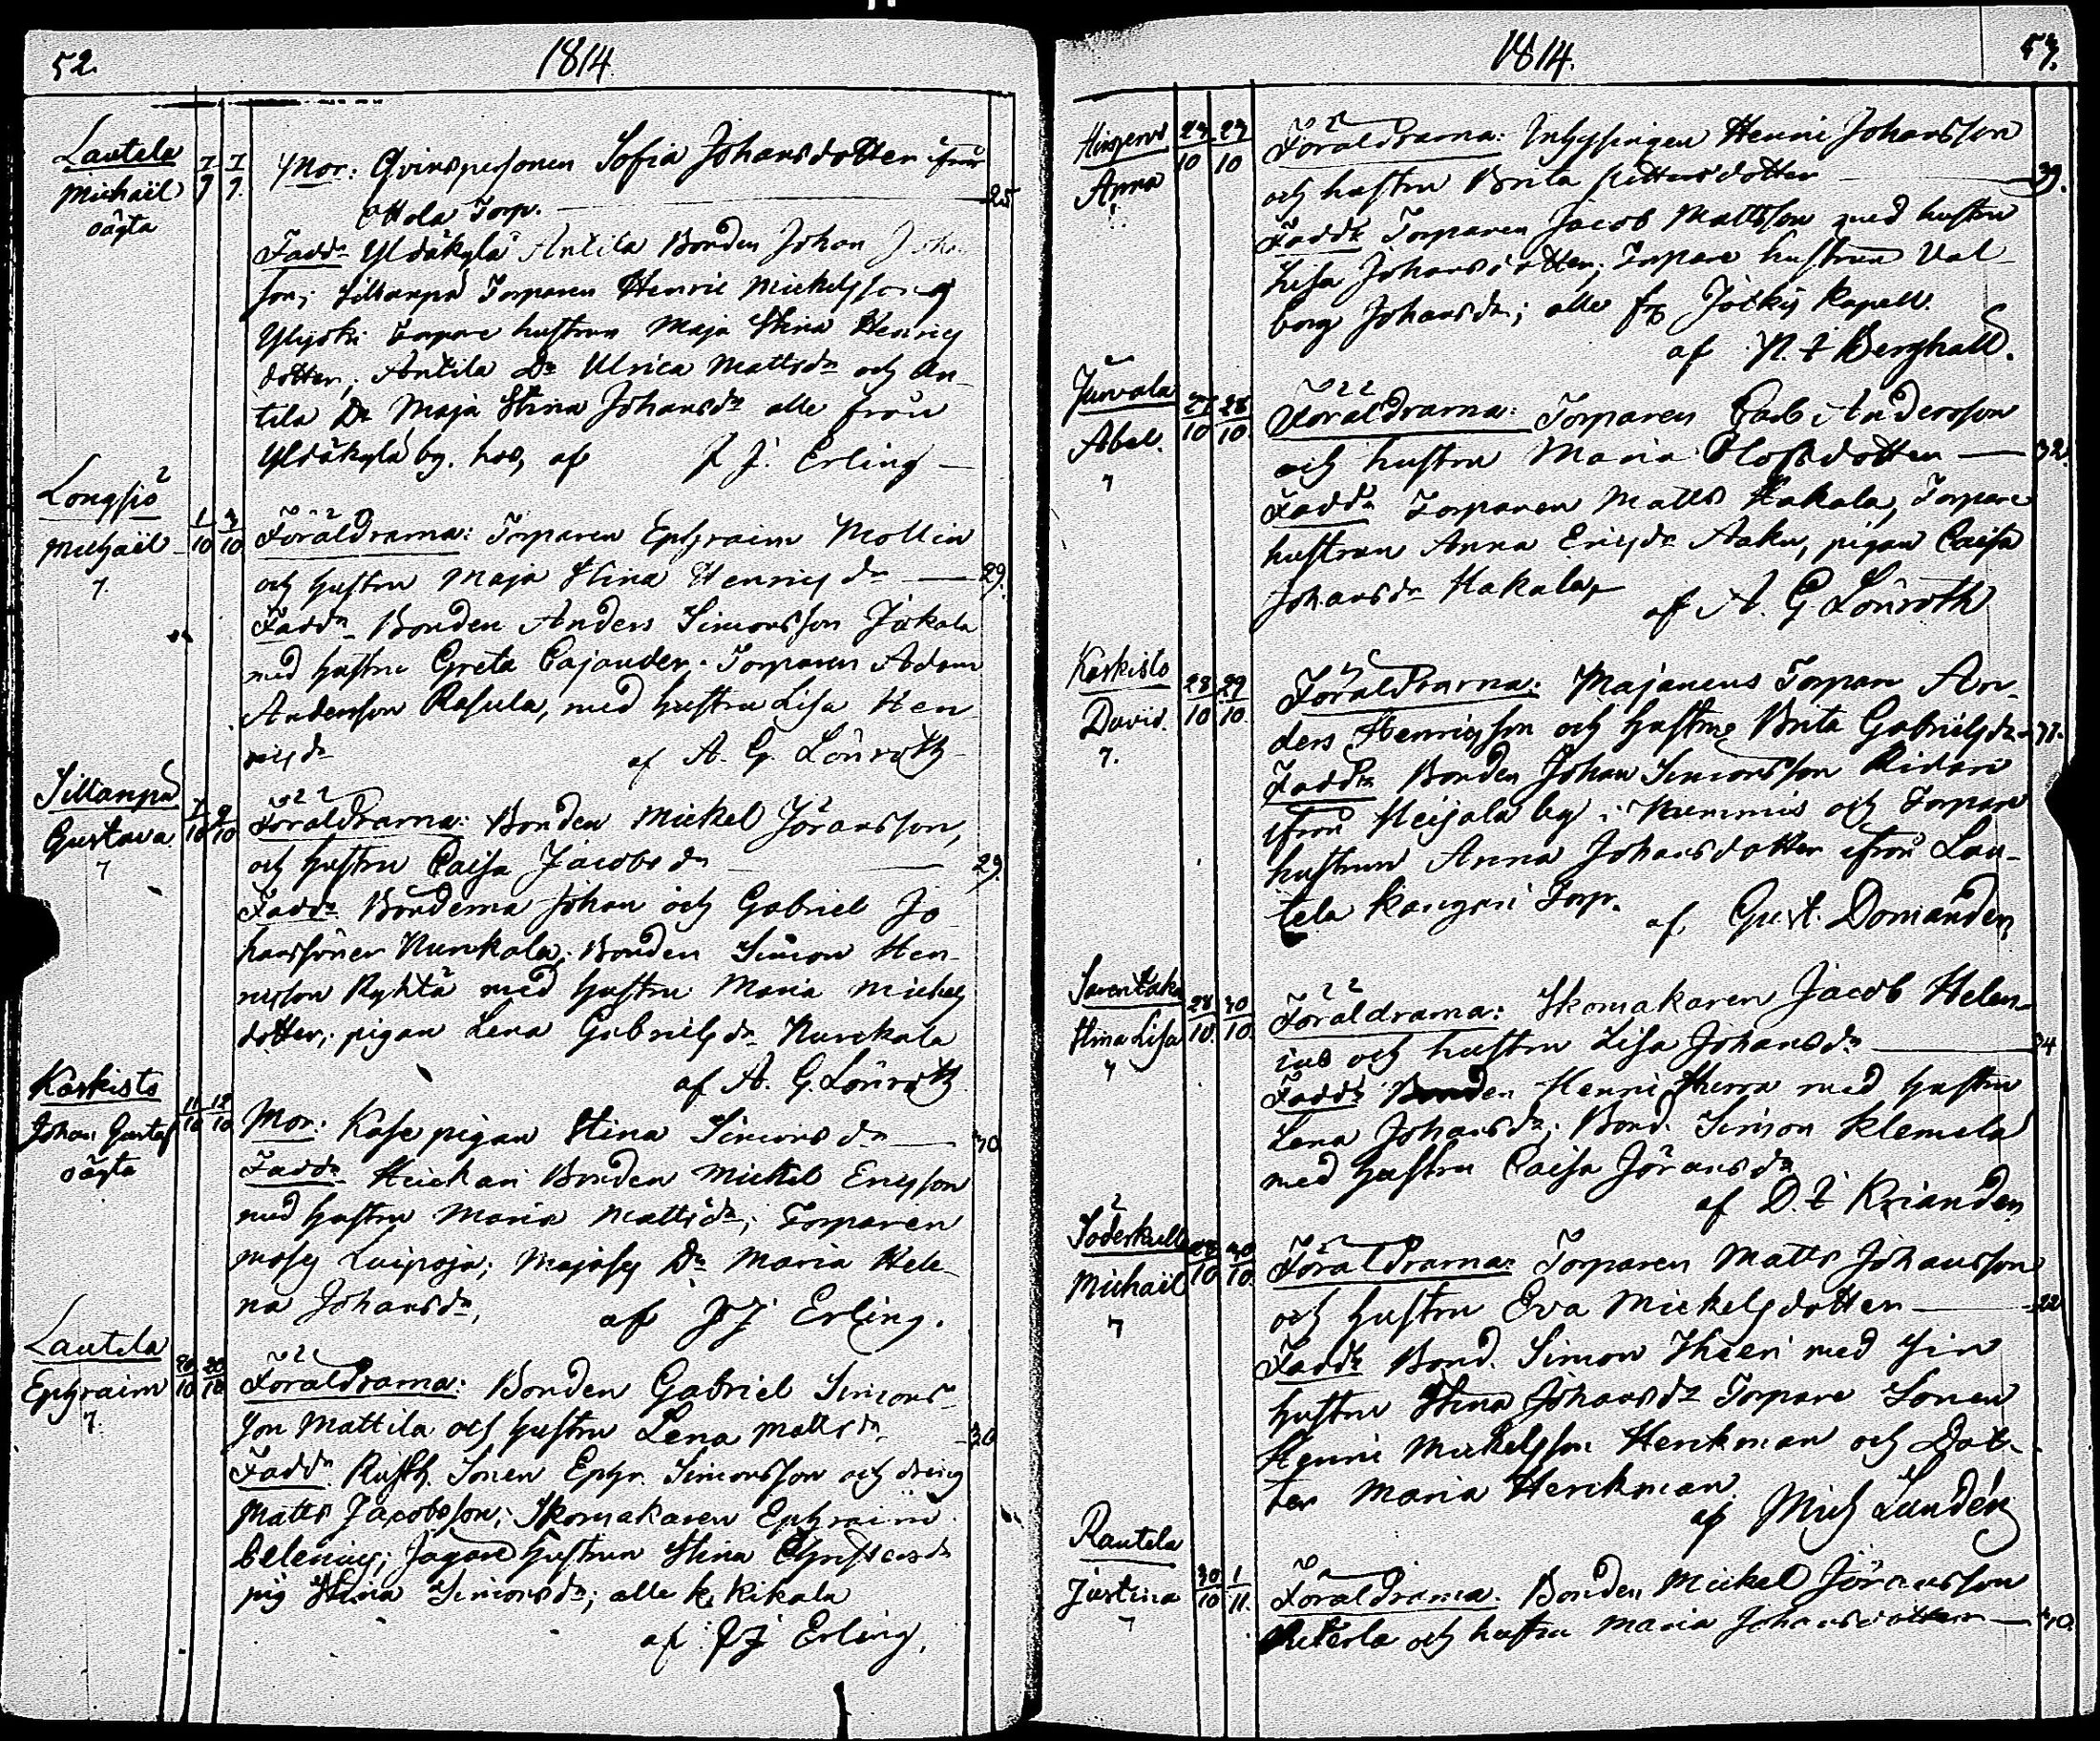 52.
1814
Lautela
Michaël
oägta
7/9 7/9
Mor: Qvinspersonen Sofia Johansdotter ifrån
Ottola Torp. 25
Fadd. Yldäkylä Antila Bonden Johan Joha
son; Sillanpä Torparen Henric Mickelsson
Ylijoki Torpare hustrun Maja Stina Henrics
dotter; Antila Dr Ulrica Mattsdr och An-
tila Dr Maja Stina Johansdr alle från
Yldäkylä by. hos, af J. J. Erling
Longsjö
Michaël
7.
1/10 3/10
Föräldrarna: Torparen Ephraim Mollin
och hustru Maja Stina Henricsdr 29.
Fadd. Bonden Anders Simonsson Jokala
med hustru Greta Cajander. Torparen Adam
Andersson Rasula, med hustru Lisa Hen
ricsdr af A. G. Lönroth
Sillanpä
Gustava
7
7/10 9/10
Föräldrarna: Bonden Mickel Jöransson,
och hustru Caisa Jacobsdr 29.
Fadd. Bönderna Johan och Gabriel Jo
hanssöner Nurckala; Bonden Simon Hen-
ricsson Ryhtä med hustru Maria Michels
dotter; pigan Lena Gabrielsdr Nurckala
af A. G. Lönroth
Koskisto
Johan Gustaf
oägta
11/10 12/10
Mor: Kase pigan Stina Simonsdr 30
Fadd. Heickari Bonden Mickel Ericsson
med hustru Maria Mattsdr; Torparen
Moses Luipoja; Majasy Dr Maria Hele-
na Johansdr, af J J Erling.
Lautela
Ephraim
7.
20/10 20/10
Föräldrarna: Bonden Gabriel Simons-
son Mattila och hustru Lena Mattsdr 30
Fadd. Rusth. Sonen Ephr. Simonsson och dreng
Matts Jacobsson; Skomakaren Ephraim
Celenius; Jägare hustrun Stina
pig Stina Simonsdr; alle fr. Kikala
af J J Erling.
1814.
53.
Anna
23/10 23/10
Föräldrarna: Inhysingen Henric Johansson
och hustru Brita Pettersdotter 39.
Fadd. Torparen Jacob Mattsson med hustru
Lisa Johansdotter; Torpare hustrun Val-
borg Johansdr; alle fr Jockis Kapell.
af N. J Berghäll.
Juvala
Abel.
7
27/10 28/10
Föräldrarna: Torparen Carl Andersson
och hustru Maria Olofsdotter 32.
Fadd. Torparen Matts Hakala, Torpare
hustrun Anna Ericsdr Aaku, pigan Caisa
Johansdr Hakala,
af A. G. Lönroth
Koskisto
David.
7.
28/10 29/10
Föräldrarna: Majaneus Torpare An-
ders Henricsson och hustru Brita Gabrielsdr
Fadd. Bonden Johan Simonsson Ridari
ifrån Heijala by i Nummis och Torpare
hustrun Anna Johansdotter ifrån Lau-
tela Kangari Torp.
af, Gust. Domander
Stina Lisa
7
28/10 30/10
Föräldrarna: Skomakaren Jacob Helen-
ius och hustru Lisa Johansdr 34
Fadd. Bonden Henric Sherra med hustru
Lena Johansdr; Bond. Simon Klemela
med hustru Caisa Jöransdr
af D. J Kriander
Söderkulla
Michaël
7
28/10 30/10
Föräldrarna: Torparen Matts Johansson
och hustru Eva Mickelsdotter 22
Fadd. Bond. Simon Skeeri med sin
hustru Stina Johansdr Torpare Sonen
Henric Mickelsson Henkman och Dot-
ter Maria Henkman.
af Mich Lundén
Rautela
Justina
7
30/10 1/11.
Föräldrarna. Bonden Mickel Jöransson
och hustru Maria Johansdotter 40